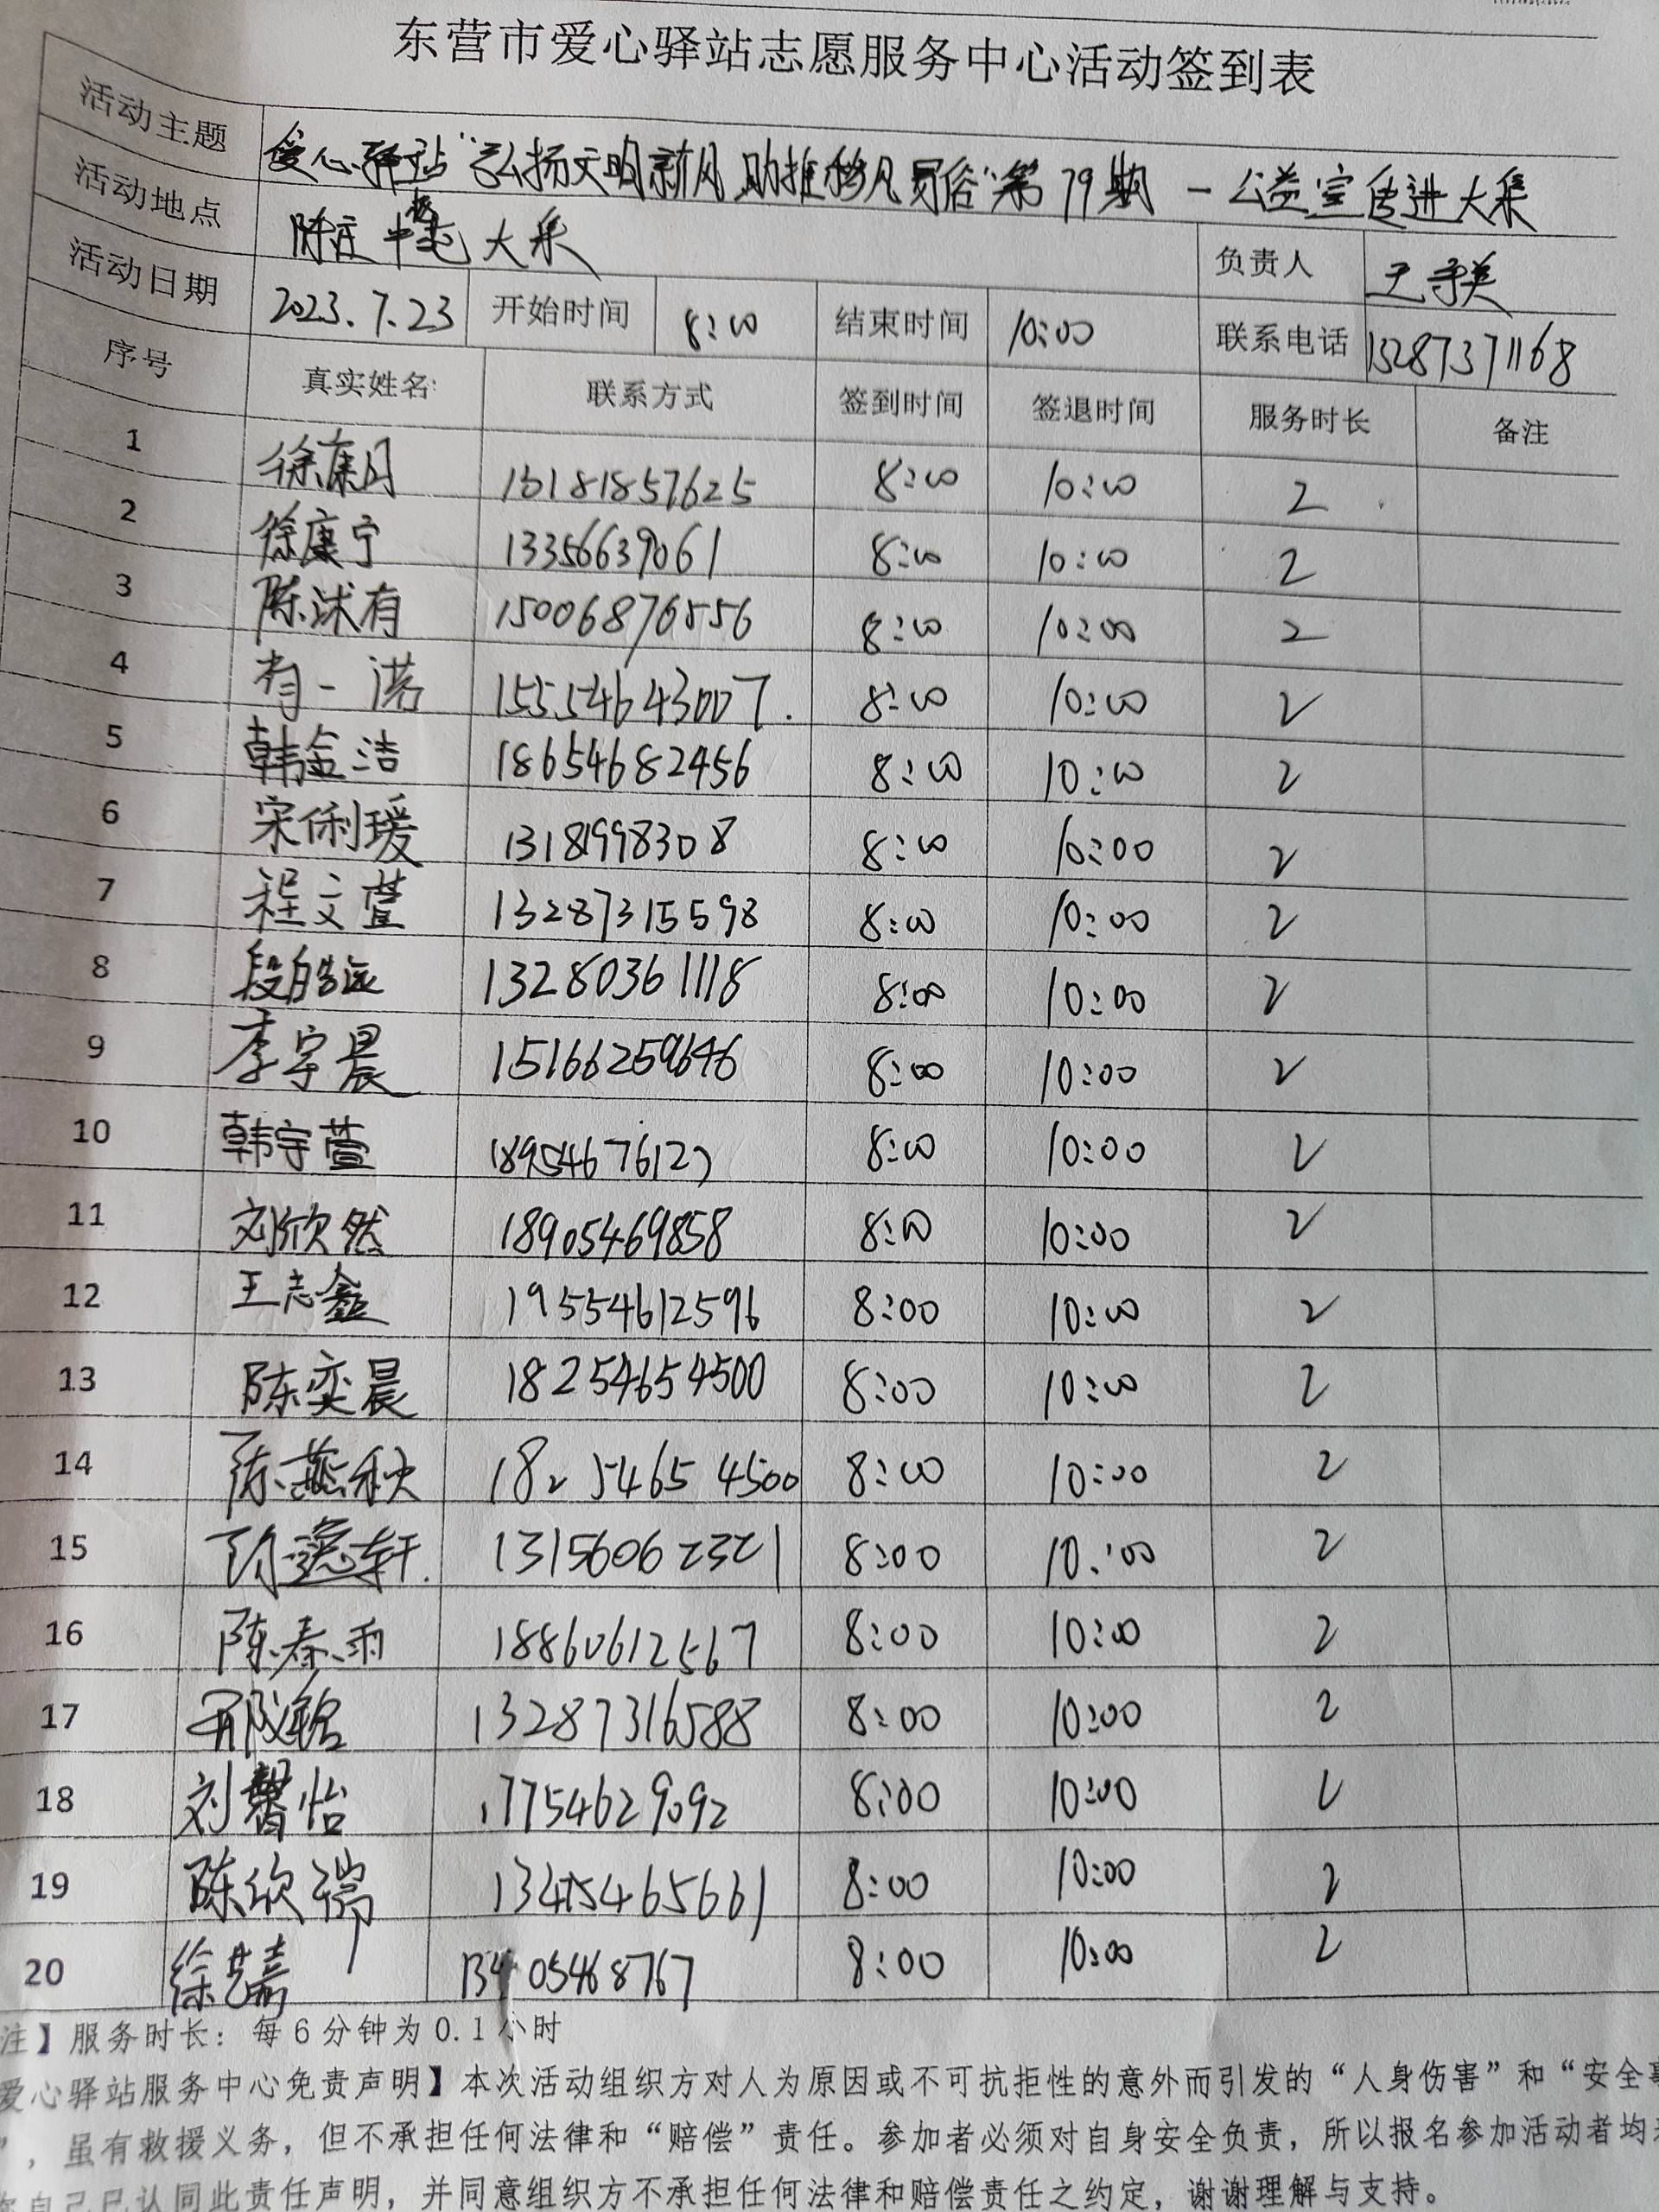 东营市爱心驿站志愿服务中心活动签到表
活动主题 爱心驿站“弘扬文明新风 助推移风易俗”第79期 - 公益宣传进大集
活动地点 陈庄 大集 负责人
活动日期 2023.7.23 开始时间 8:00 结束时间 10:00 联系电话 13287371168
序号 真实姓名: 联系方式 签到时间 签退时间 服务时长 备注
1 徐康 13181857625 8:00 10:00 2
2 徐康宁 13356639061 8:00 10:00 2
3 陈沭有 15006876556 8:00 10:00 2
4 有一诺 15554643007. 8:00 10:00 2
5 韩金洁 18654682456 8:00 10:00 2
6 宋俐瑗 13181998308 8:00 10:00 2
7 程文萱 13287315598 8:00 10:00 2
8 段皓远 13280361118 8:00 10:00 2
9 李宇晨 15166259646 8:00 10:00 2
10 韩宇萱 18954676127 8:00 10:00 2
11 刘欣然 18905469858 8:00 10:00 2
12 王志鑫 19554612596 8:00 10:00 2
13 陈奕晨 18254654500 8:00 10:00 2
14 陈燕秋 18254654500 8:00 10:00 2
15 陈逸轩. 13156062321 8:00 10:00 2
16 陈春雨 18860612567 8:00 10:00 2
17 13287316588 8:00 10:00 2
18 刘馨怡 17754629092 8:00 10:00 2
19 陈欣瑞 8:00 10:00 2
20 徐艺嘉 13405468767 8:00 10:00 2
注】服务时长：每6分钟为0.1小时
爱心驿站服务中心免责声明】本次活动组织方对人为原因或不可抗拒性的意外而引发的“人身伤害”和“安全事
”，虽有救援义务，但不承担任何法律和“赔偿”责任。参加者必须对自身安全负责，所以报名参加活动者均
自己已认同此责任声明，并同意组织方不承担任何法律和赔偿责任之约定，谢谢理解与支持。